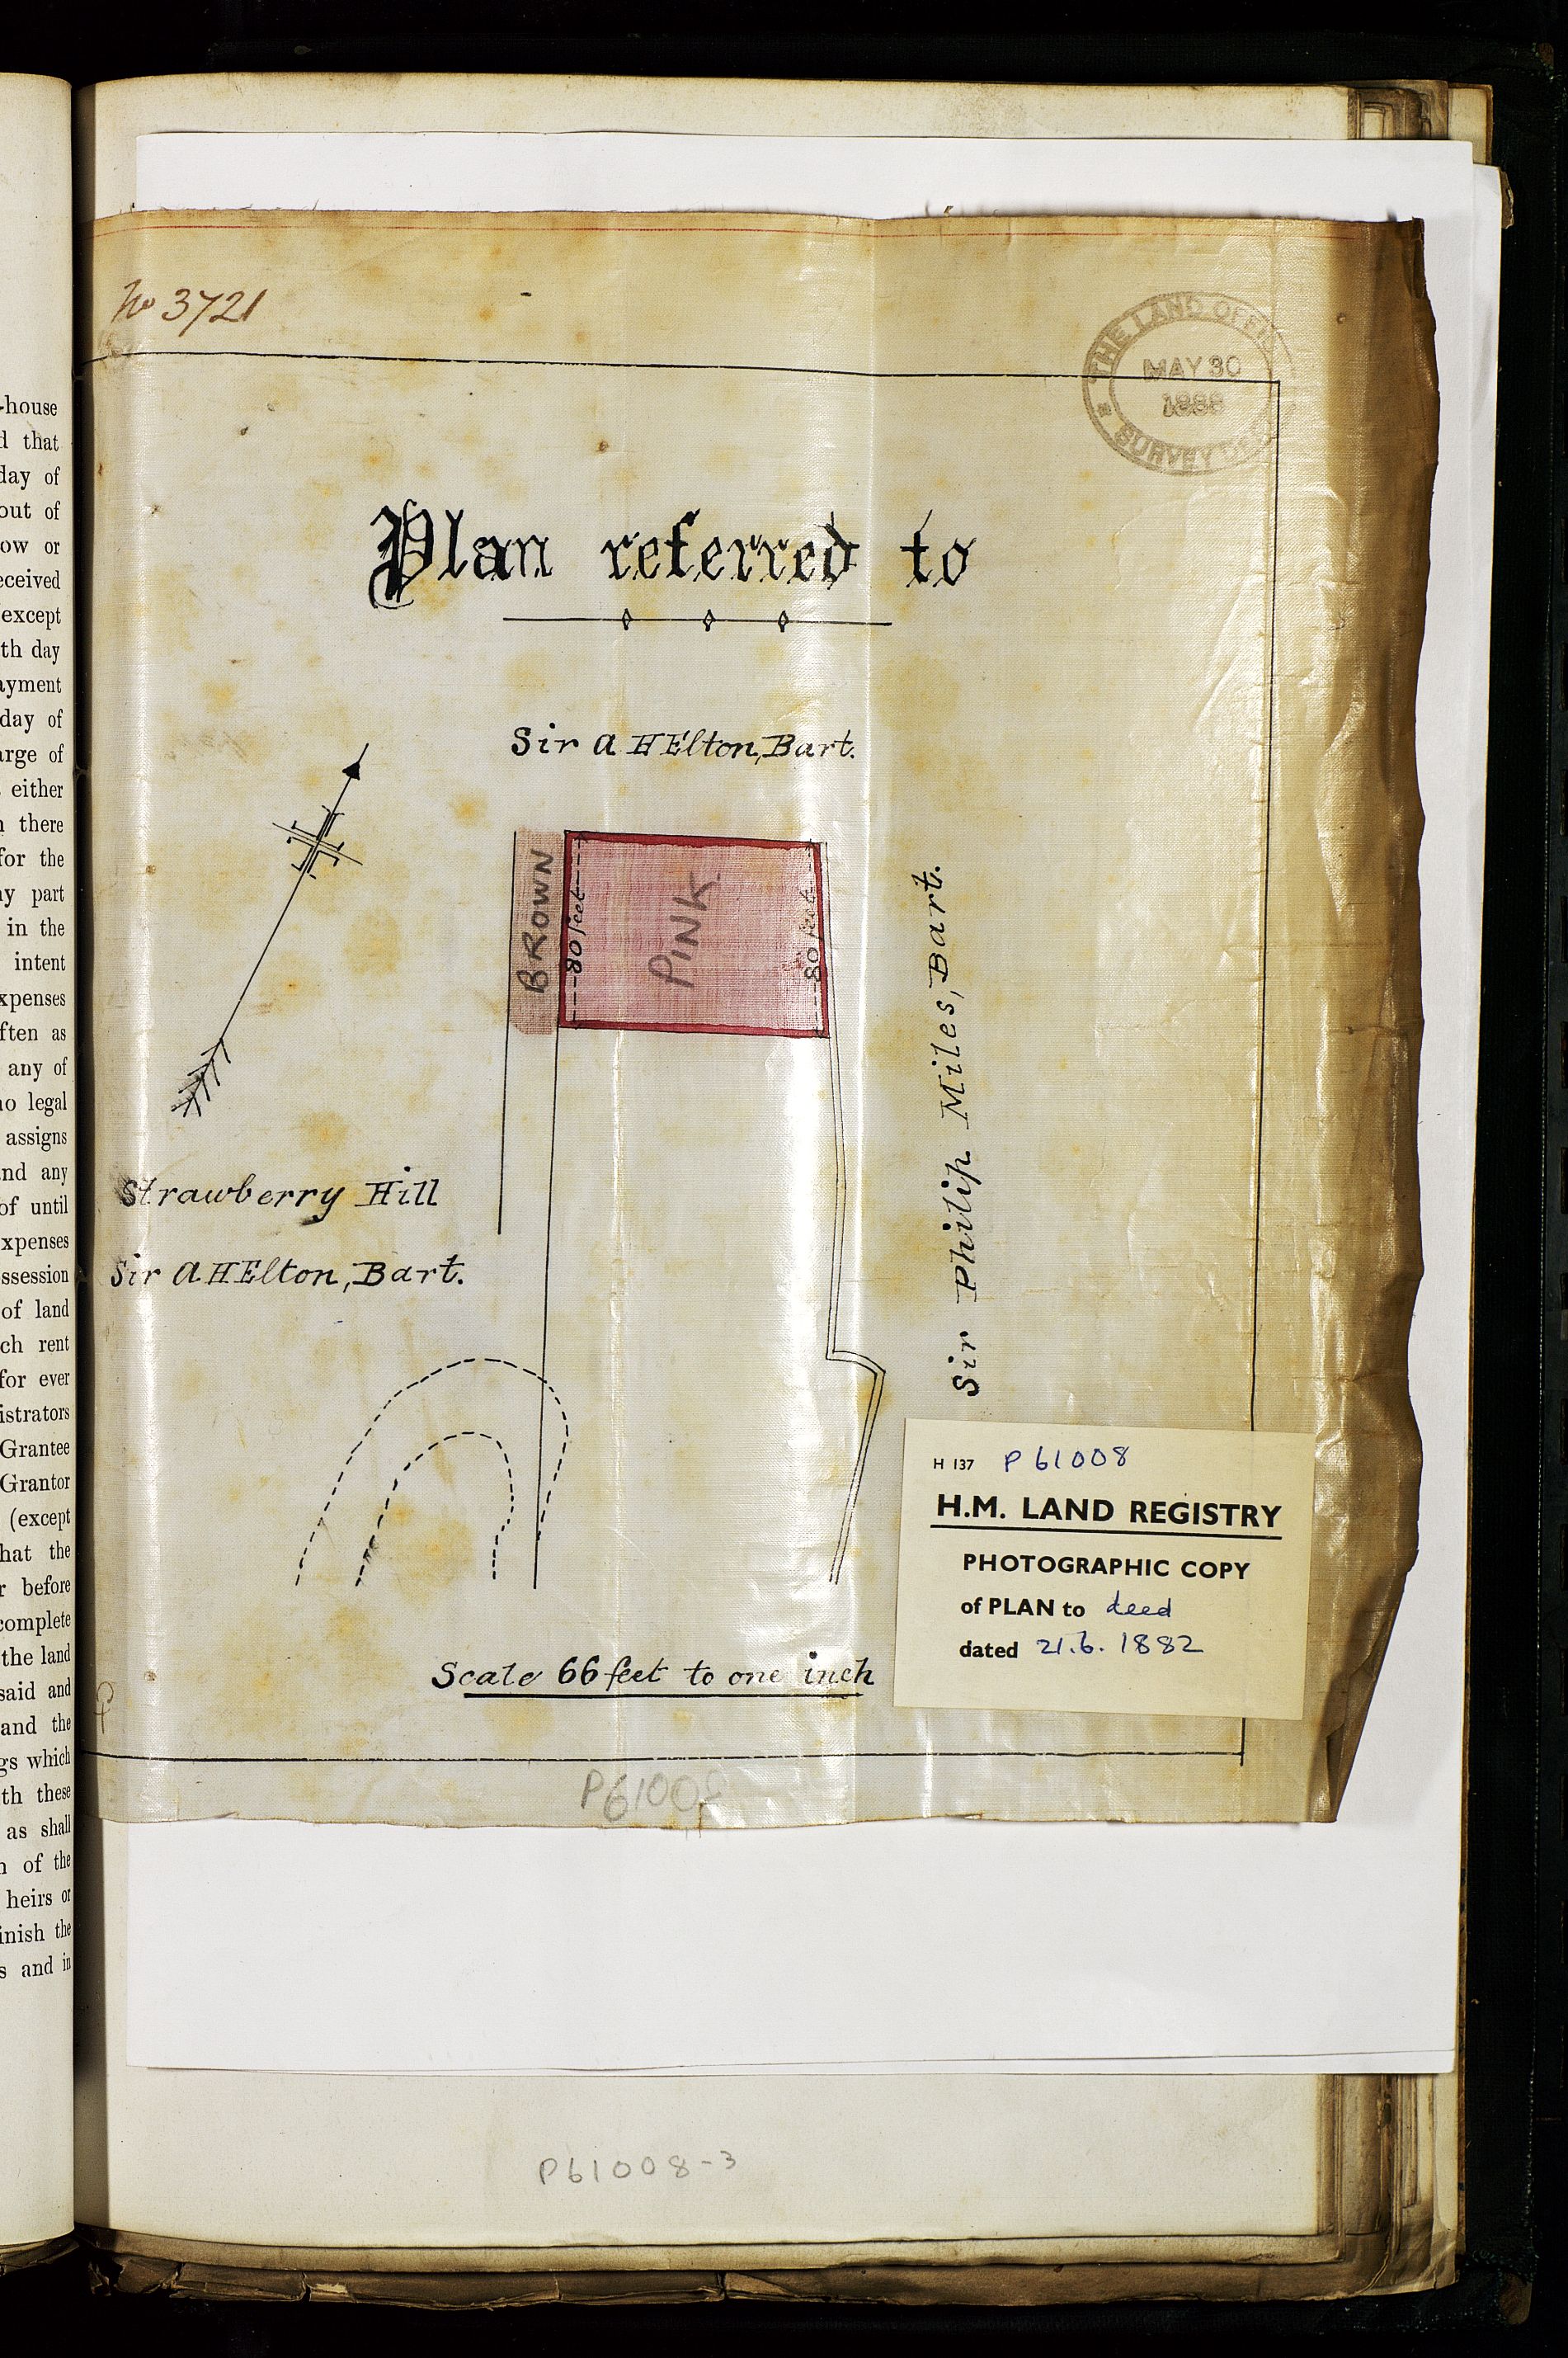 -house
d that
day of
out of
ow or
eceived
except
th day
ayment
day of
arge of
either
n there
for the
ny part
in the
intent
xpenses
ften as
any of
no legal
assigns
and any
of until
xpenses
ssession
of land
ch rent
for ever
istrators
Grantee
Grantor
(except
hat the
r before
complete
the land
said and
and the
gs which
th these
as shall
n of the
heirs or
inish the
s and in
No 3721
THE LAND OFFIC
MAY 30
SURVEY DE
Plan referred to
Sir A H Elton, Bart.
BROWN
80 feet
PINK
80 feet
Sir Philip Miles, Bart.
Strawberry Hill
Sir A H Elton, Bart.
Scale 66 feet to one inch
H 137 P 61008
H.M. LAND REGISTRY
PHOTOGRAPHIC COPY
of PLAN to deed
dated 21.6.1882
P61008
P61008-3